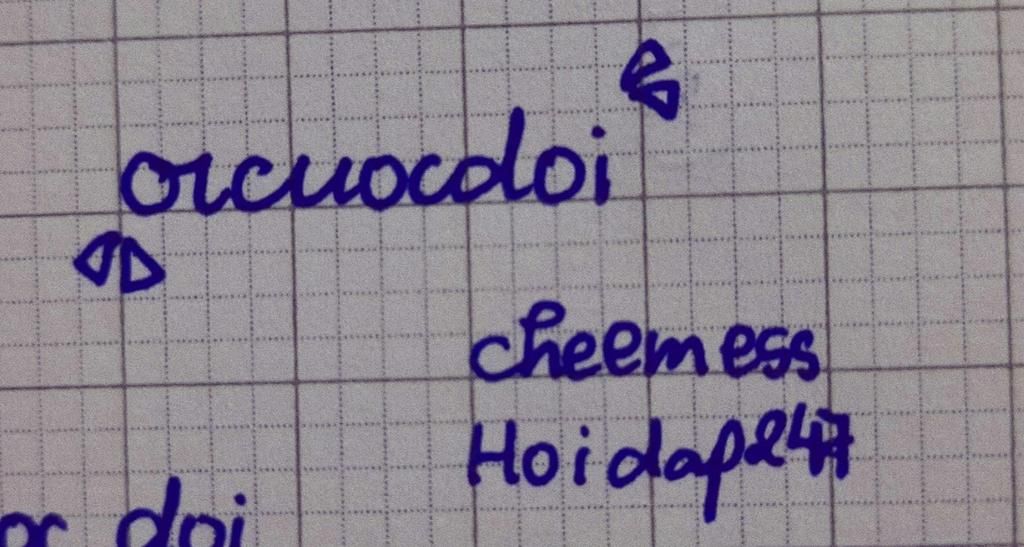 orcuocdoi
cheemess
Hoidap247
oc doi